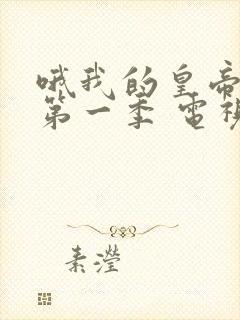 哦我的皇帝
第一季 電視
素瀅